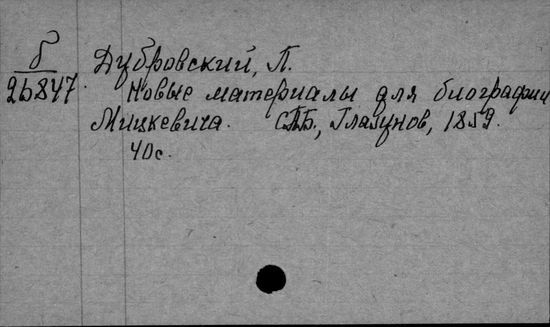 б
26847.
Дубровский, П.
Новые материалы для биографии
Мицкевича. СПБ, Глазунов, 1859.
40с.